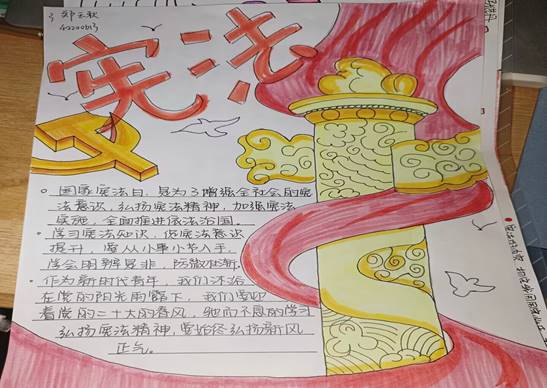 宪法
国家宪法日，是为了增强全社会的宪
法意识，弘扬宪法精神，加强宪法
实施，全面推进依法治国。
学习宪法知识，使宪法意识
提升，要从小事小节入手，
学会明辨是非，防微杜渐。
作为新时代青年，我们沐浴
在党的阳光雨露下，我们要迎
着党的二十大的春风，驰而不息的学习
弘扬宪法精神，要始终弘扬新风
正气。